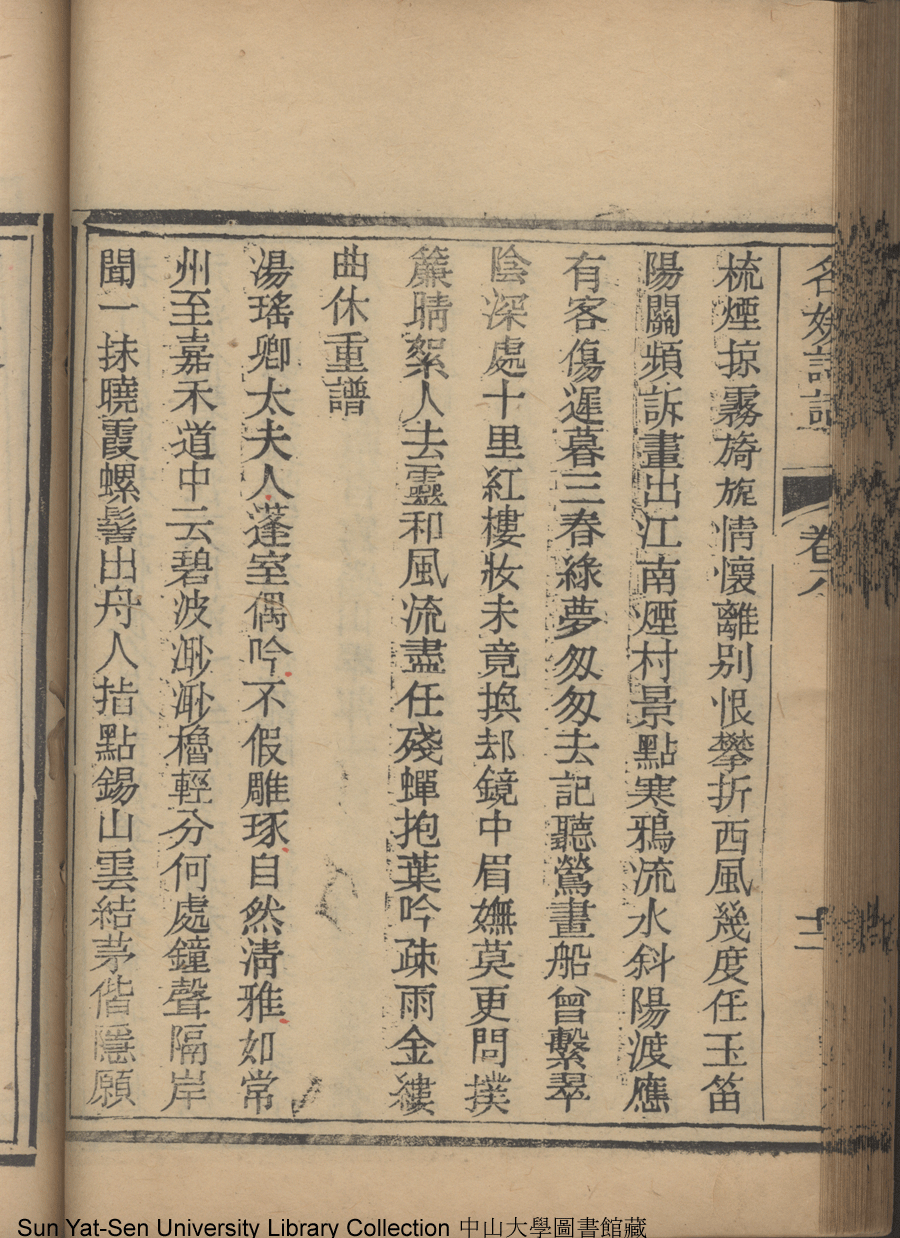 名媛詩話 卷八 十二
梳煙掠霧旖旎情懷離別恨攀折西風幾度任玉笛
陽關頻訴畫出江南煙村景點寒鴉流水斜陽渡應
有客傷遲暮三春綠夢匆匆去記聽鶯畫船曾繫翠
陰深處十里紅樓妝未竟換却鏡中眉嫵莫更問撲
簾晴絮人去靈和風流盡任殘蟬抱葉吟疎雨金縷
曲休重譜
湯瑤卿太夫人蓬室偶吟不假雕琢自然清雅如常
州至嘉禾道中云碧波渺渺櫓輕分何處鐘聲隔岸
聞一抹曉霞螺髻出舟人指點錫山雲結茅偕隱願
Sun Yat-Sen University Library Collection 中山大學圖書館藏